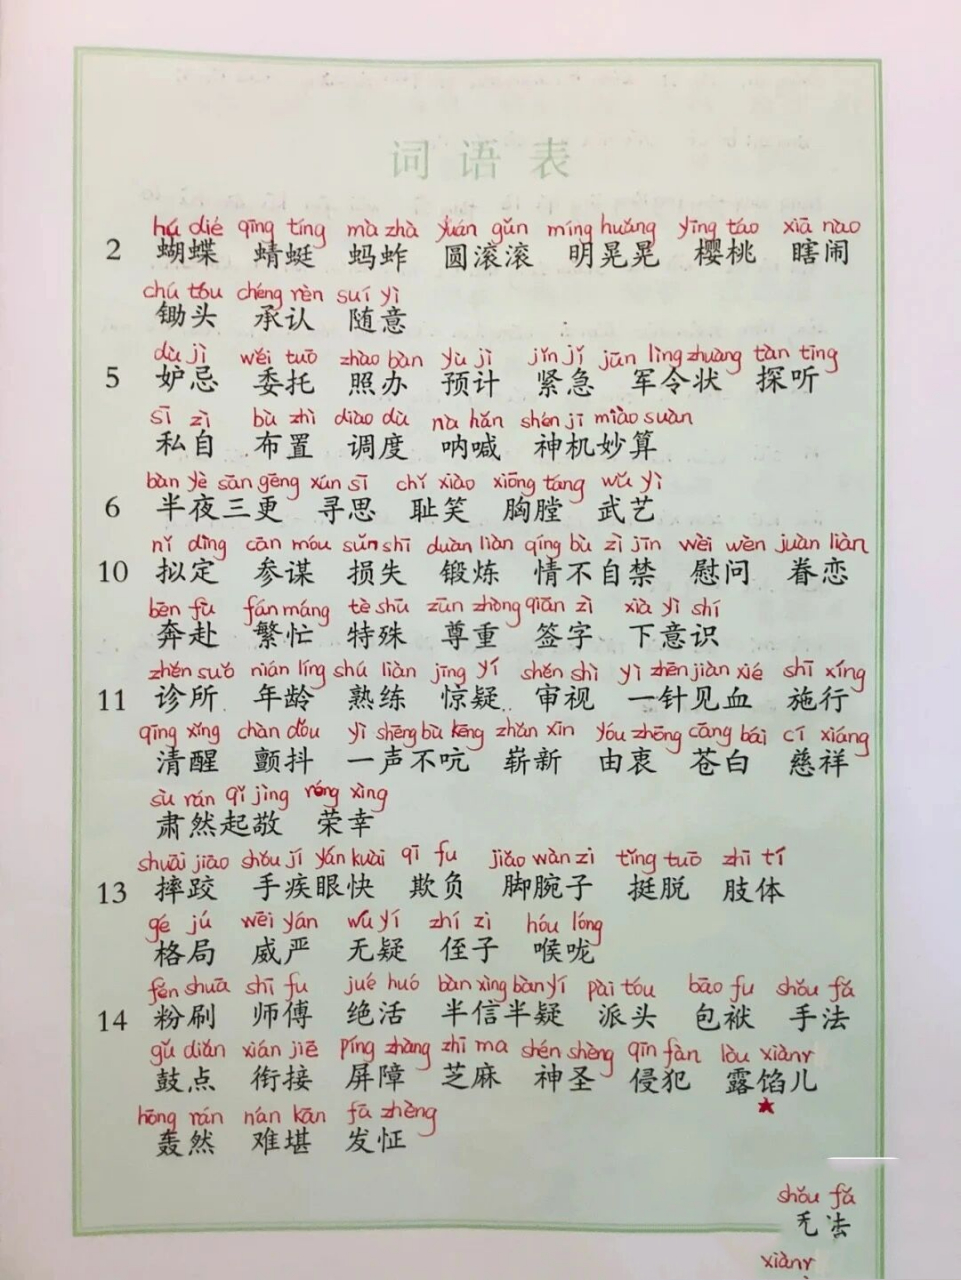 词语表
hú dié qīng tíng mà zhà yuán gǔn míng huǎng yīng táo xiā nào
2 蝴蝶 蜻蜓 蚂蚱 圆滚滚 明晃晃 樱桃 瞎闹
chú tóu chéng rèn suí yì
锄头 承认 随意
dù jì wěi tuō zhào bàn yù jì jǐn jí jūn lìng zhuàng tàn tīng
5 妒忌 委托 照办 预计 紧急 军令状 探听
sī zì bù zhì diào dù nà hǎn shén jī miào suàn
私自 布置 调度 呐喊 神机妙算
bàn yè sān gēng xún sī chǐ xiào xiōng táng wǔ yì
6 半夜三更 寻思 耻笑 胸膛 武艺
nǐ dìng cān móu sǔn shī duàn liàn qíng bù zì jīn wèi wèn juàn liàn
10 拟定 参谋 损失 锻炼 情不自禁 慰问 眷恋
bēn fù fán máng tè shū zūn zhòng qiān zì xià yì shí
奔赴 繁忙 特殊 尊重 签字 下意识
zhěn suǒ nián líng shú liàn jīng yí shěn shì yì zhēn jiàn xiě shī xíng
11 诊所 年龄 熟练 惊疑 审视 一针见血 施行
qīng xǐng chàn dǒu yì shēng bù kēng zhǎn xīn yóu zhōng cāng bái cí xiáng
清醒 颤抖 一声不吭 崭新 由衷 苍白 慈祥
sù rán qǐ jìng róng xìng
肃然起敬 荣幸
shuāi jiāo shǒu jí yǎn kuài qī fu jiǎo wàn zi tǐng tuō zhī tǐ
13 摔跤 手疾眼快 欺负 脚腕子 挺脱 肢体
gé jú wēi yán wú yí zhí zi hóu lóng
格局 威严 无疑 侄子 喉咙
fěn shuā shī fu jué huó bàn xìn bàn yí pài tóu bāo fu shǒu fǎ
14 粉刷 师傅 绝活 半信半疑 派头 包袱 手法
gǔ diǎn xián jiē píng zhàng zhī ma shén shèng qīn fàn lòu xiànr
鼓点 衔接 屏障 芝麻 神圣 侵犯 露馅儿
hōng rán nán kān fā zhèng
轰然 难堪 发怔
shǒu fǎ
xiànr